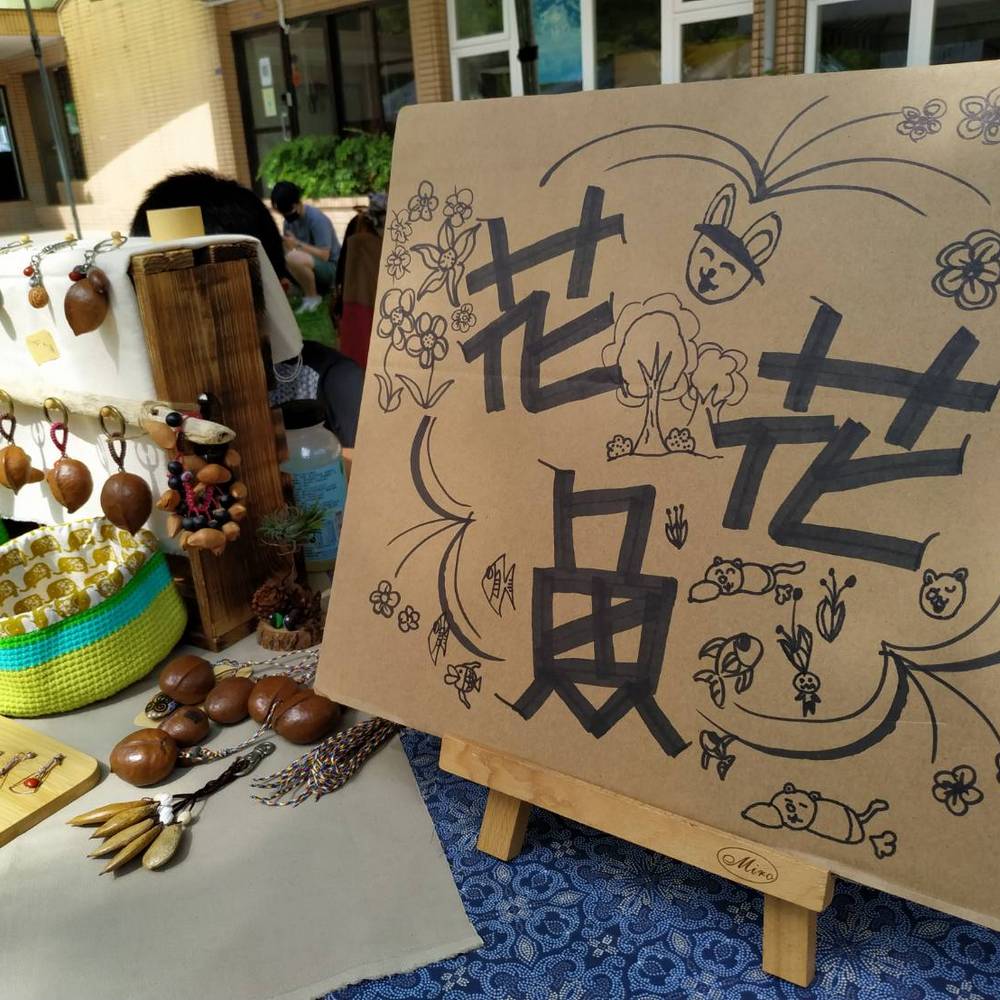 花花
魚
Miro